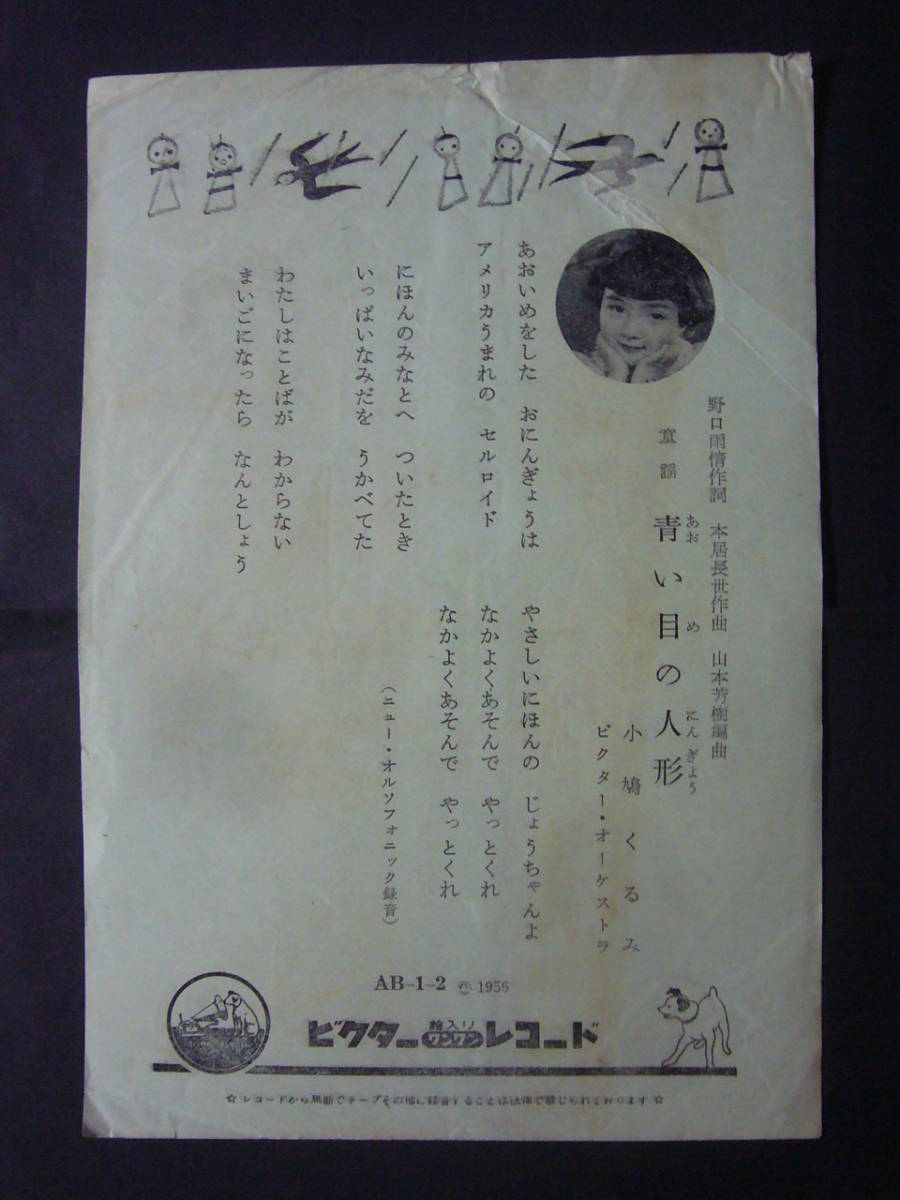 野口雨情作詞　本居長世作曲　山本芳樹編曲
童謡　青い目の人形
あお　め　にんぎょう
小鳩くるみ
ビクター・オーケストラ
あおいめをした　おにんぎょうは
アメリカうまれの　セルロイド
にほんのみなとへ　ついたとき
いっぱいなみだを　うかべてた
わたしはことばが　わからない
まいごになったら　なんとしょう
やさしいにほんの　じょうちゃんよ
なかよくあそんで　やっとくれ
なかよくあそんで　やっとくれ
（ニュー・オルソフォニック録音）
AB-1-2 1956
ビクター絵入りレコード
☆レコードから無断でテープその他に録音することは法律で禁じられております☆